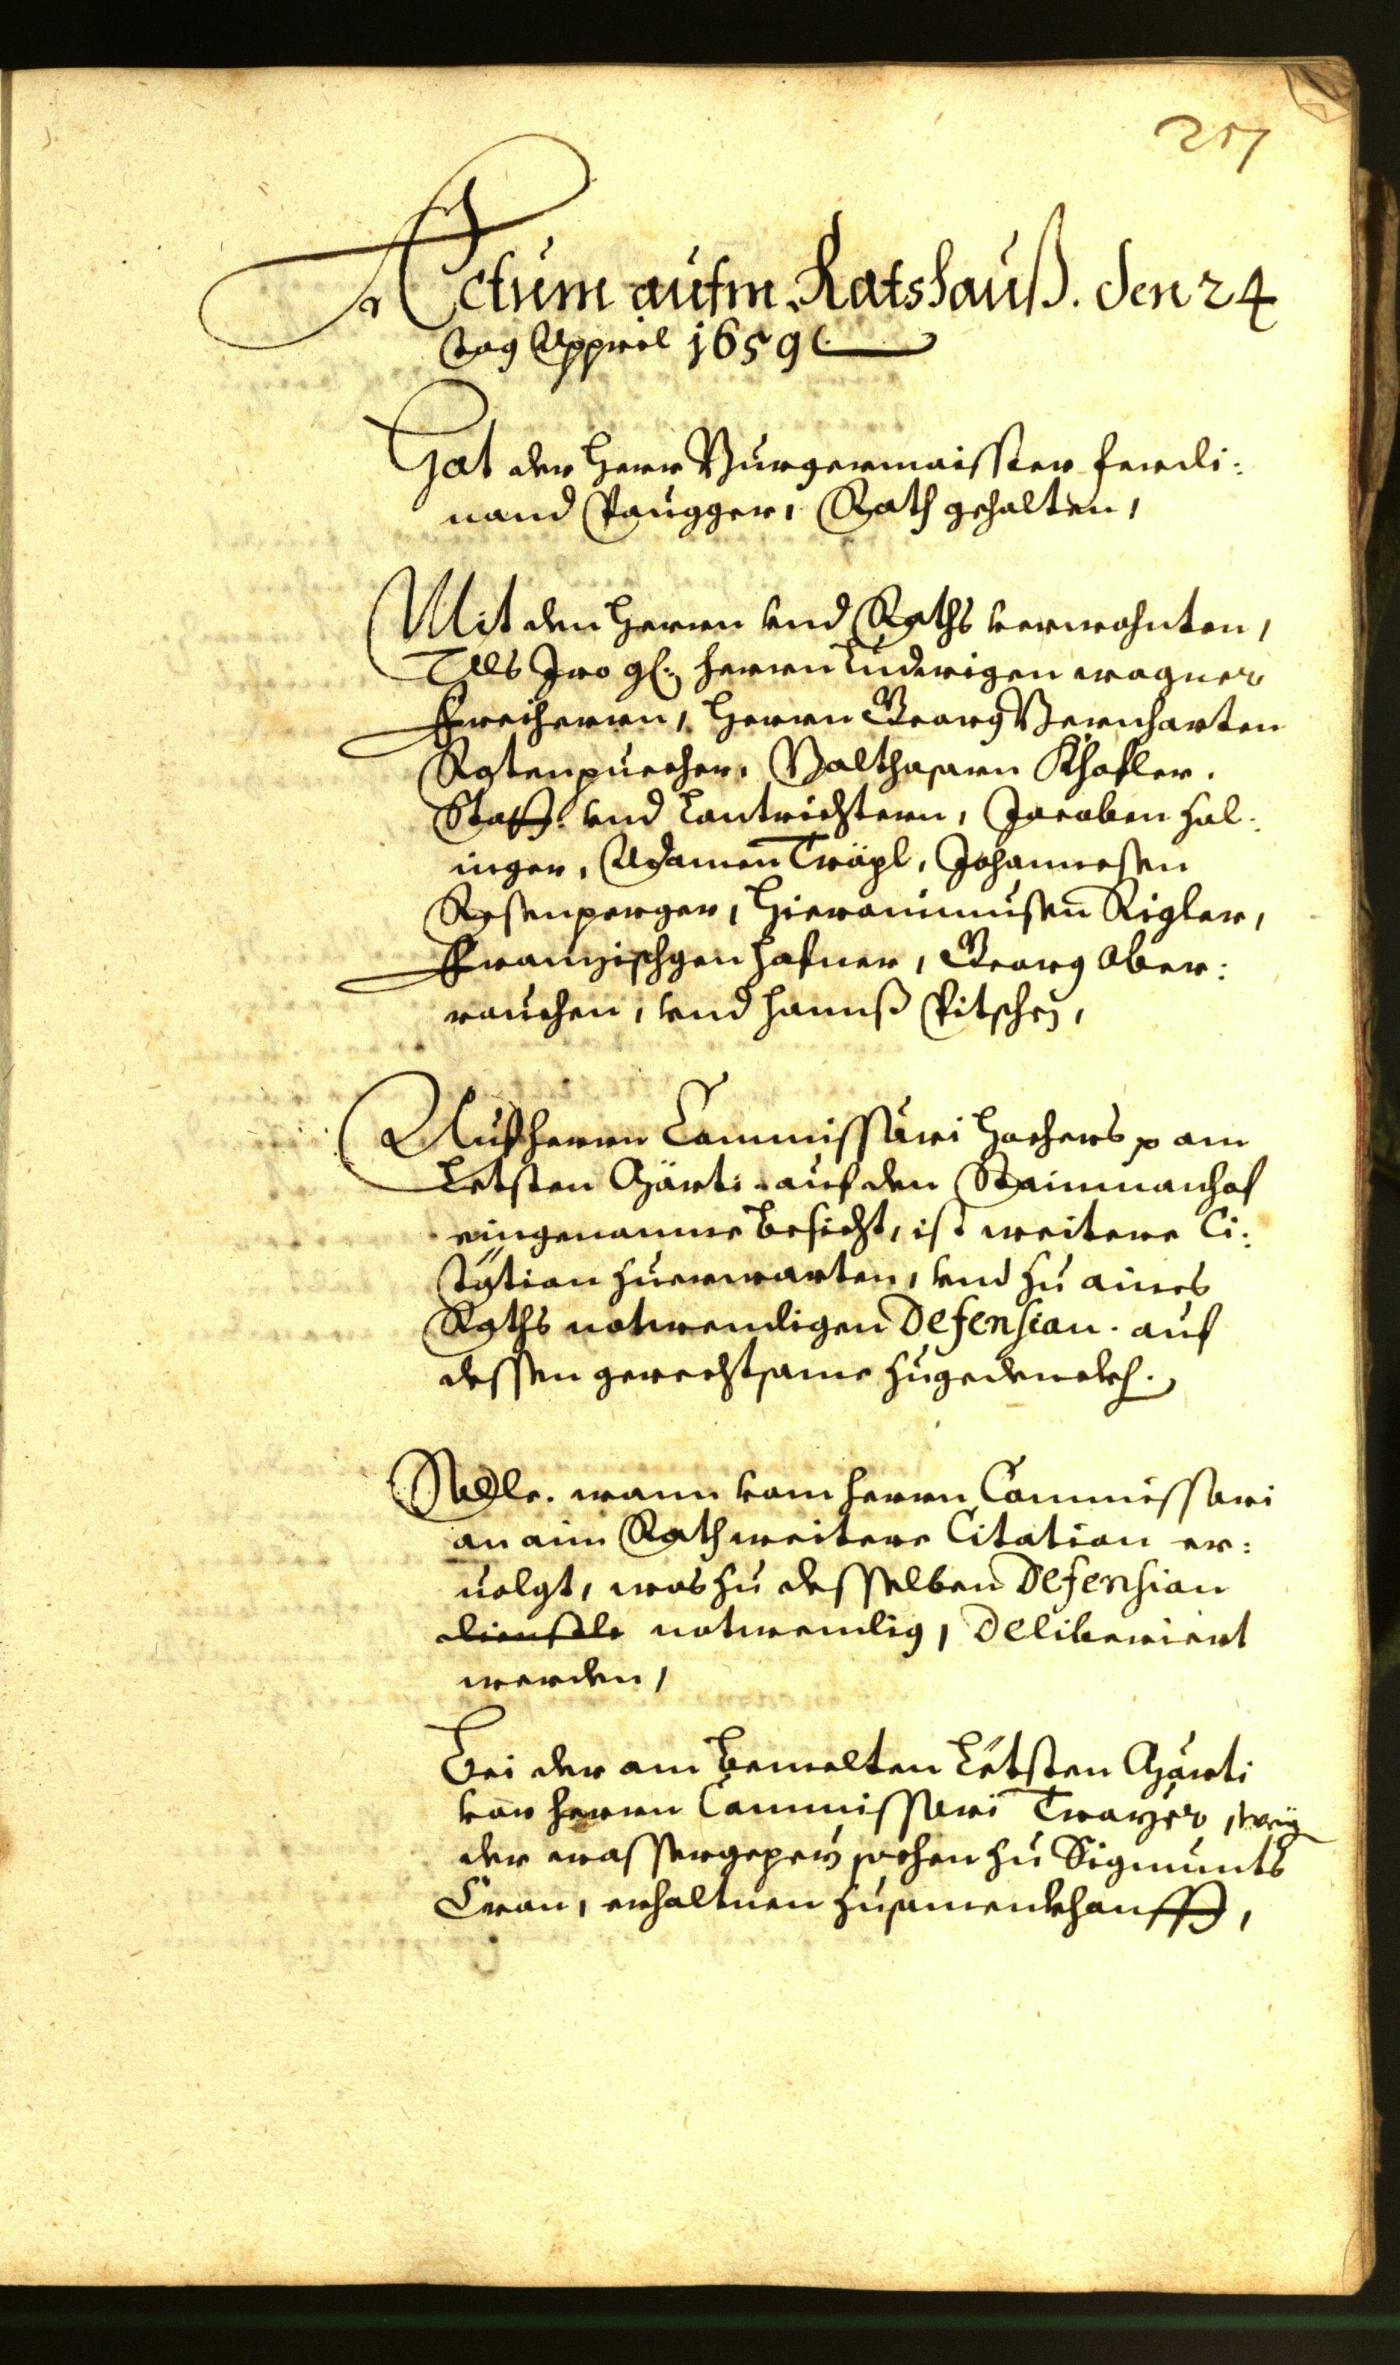 257
Actum aufm Ratshauß. den 24
tag Appril 1659
Hat der Herr Burgermaisster Ferdi:
nand Paugger, Rath gehalten,
Mit den Herren vnd Raths verwohnten,
Als Iro gl: Herrn Ludwigen wagner
Freiherrn, Herrn Georg Bernharten
Rotenpuecher, Balthasarn Khofler.
Statt: vnd Lantrichtern, Jacoben Hol:
inger, Adamen Träpl, Johannesen
Rosenperger, Hieronimusen Rigler,
Franzischgen Hafner, Georg Ober:
rauchen, vnd Hannß Pitschej,
Auf Herrn Commissäri Hochers p am
Letsten Gärti auf den Stainmanhof
eingenomne Besicht, ist weitere Ci:
tätion zuerwarten, vnd zu aines
Raths notwendigen Defension. auf
dessen gerechtsame zugedenckh.
Solle. wann vom Herrn Commissari
an ain Rath weitere Citation er:
uolgt, was zu desselben Defension
notwendig, Deliberiert
werden,
Bei der am bemelten Letsten Gärti
von Herrn Commissäri Troyer,
der wassergepeü sachen zu Sigmunts
Cron, erhaltnen zusamenkhonfft,